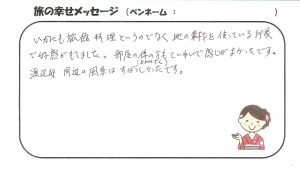 旅の幸せメッセージ (ペンネーム : )
いかにも旅館料理というのでなく 地の素材を使っている所要
で好感がもてました。部屋の係の方もていねいで感じがよかったです。
渡辺 周辺の風景はすばらしかったです。